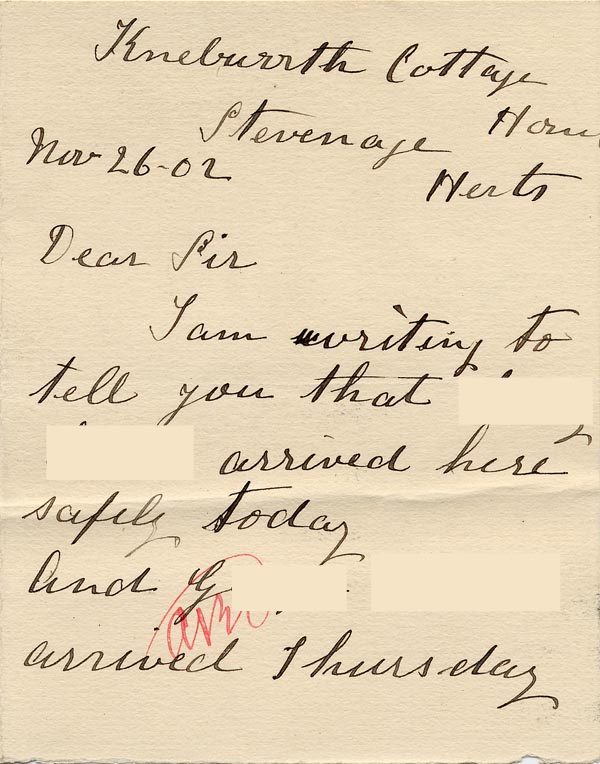 Kneburrth Cottage
Stevenage Home
Nov 26-02
Herts
Dear Sir
I am writing to
tell you that
arrived here
safely today
And G
arrived Thursday